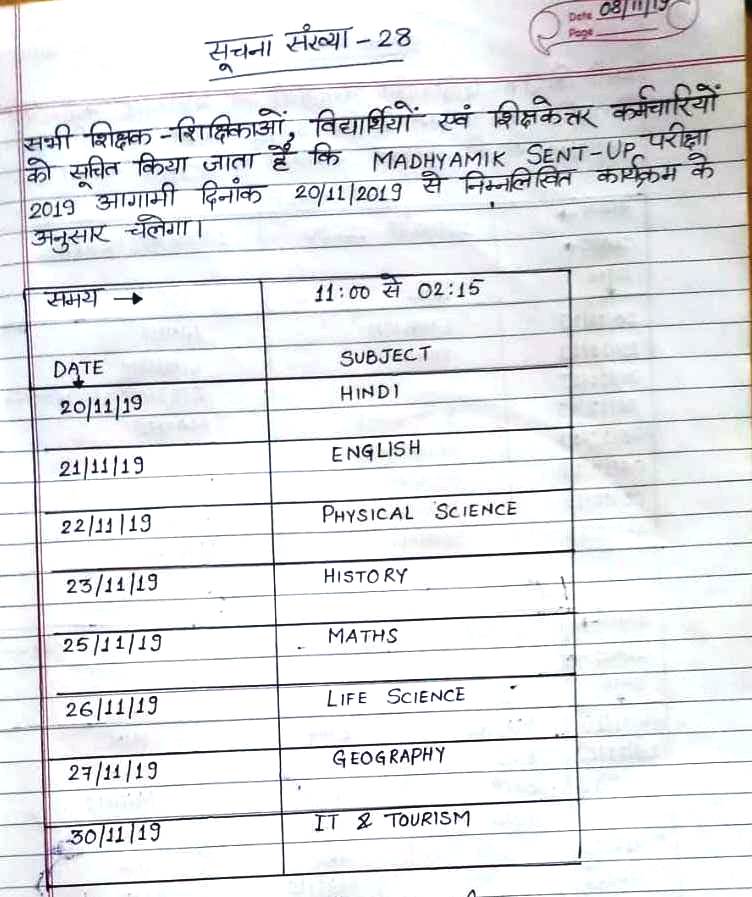 Date 08/11/19
Page
सूचना संख्या - 28
सभी शिक्षक - शिक्षिकाओं, विद्यार्थियों एवं शिक्षकेत्तर कर्मचारियों
को सूचित किया जाता है कि MADHYAMIK SENT-UP परीक्षा
2019 आगामी दिनांक 20/11/2019 से निम्नलिखित कार्यक्रम के
अनुसार चलेगा।
समय → 11:00 से 02:15
DATE SUBJECT
20/11/19 HINDI
21/11/19 ENGLISH
22/11/19 PHYSICAL SCIENCE
23/11/19 HISTORY
25/11/19 MATHS
26/11/19 LIFE SCIENCE
27/11/19 GEOGRAPHY
30/11/19 IT & TOURISM